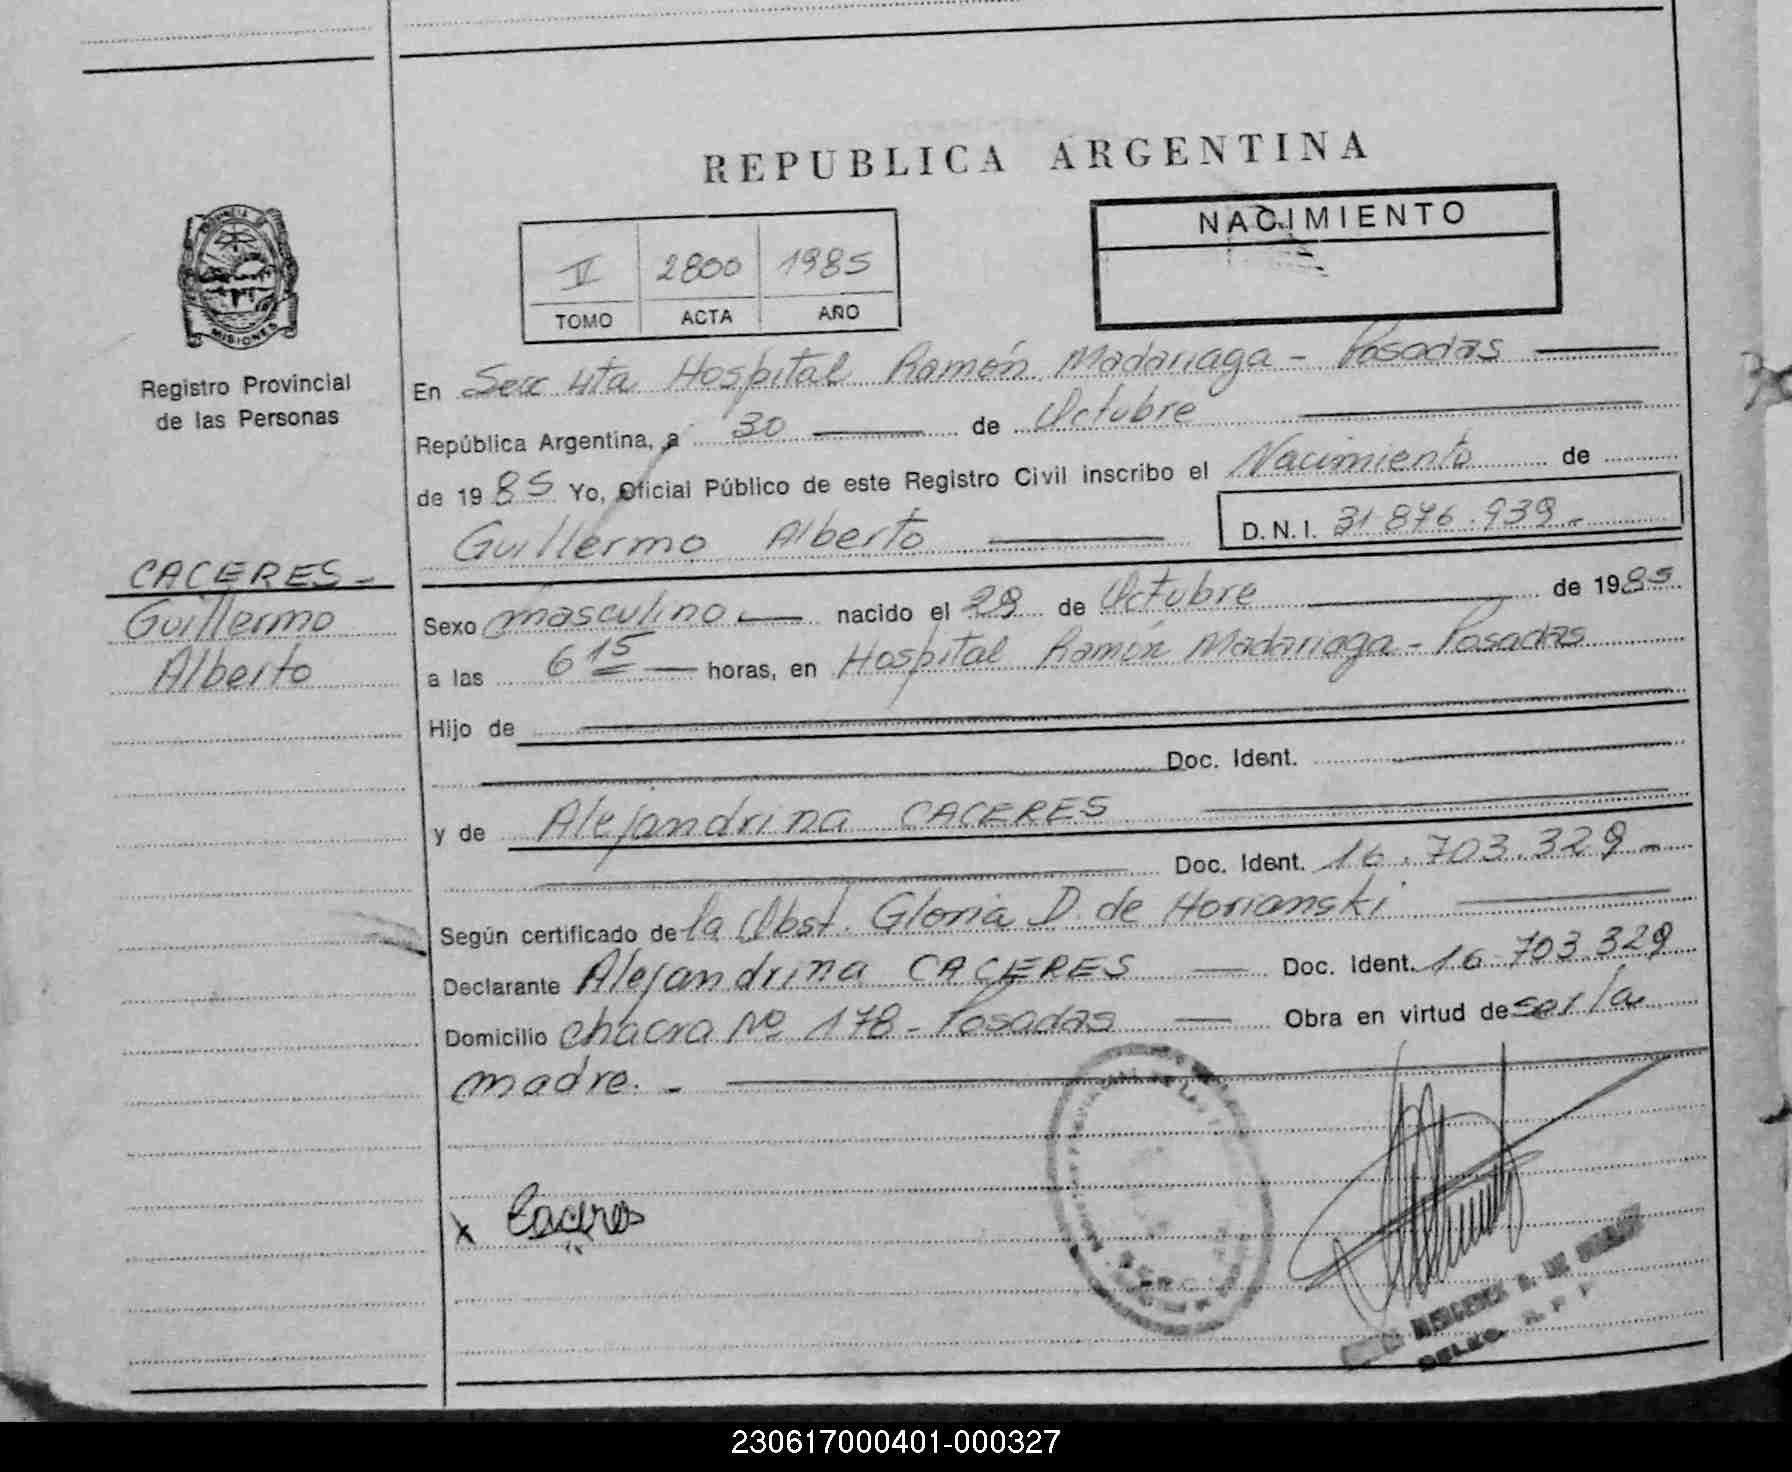 REPUBLICA ARGENTINA
PROVINCIA DE
MISIONES
Registro Provincial
de las Personas
II 2800 1985
TOMO ACTA AÑO
NACIMIENTO
En Secc 4ta Hospital Ramón Madariaga - Posadas
República Argentina, a 30 de Octubre
de 1985 Yo, Oficial Público de este Registro Civil inscribo el Nacimiento de
Guillermo Alberto D.N.I. 31.876.939.-
CACERES -
Guillermo
Alberto
Sexo masculino nacido el 29 de Octubre de 1985
a las 6 15 horas, en Hospital Ramón Madariaga - Posadas
Hijo de
Doc. Ident.
y de Alejandrina CACERES
Doc. Ident. 16.703.329 -
Según certificado de la Obst. Gloria D. de Horianski
Declarante Alejandrina CACERES Doc. Ident. 16.703.329
Domicilio Chacra Nº 178 - Posadas Obra en virtud de ser la
madre. -
x Caceres
230617000401-000327